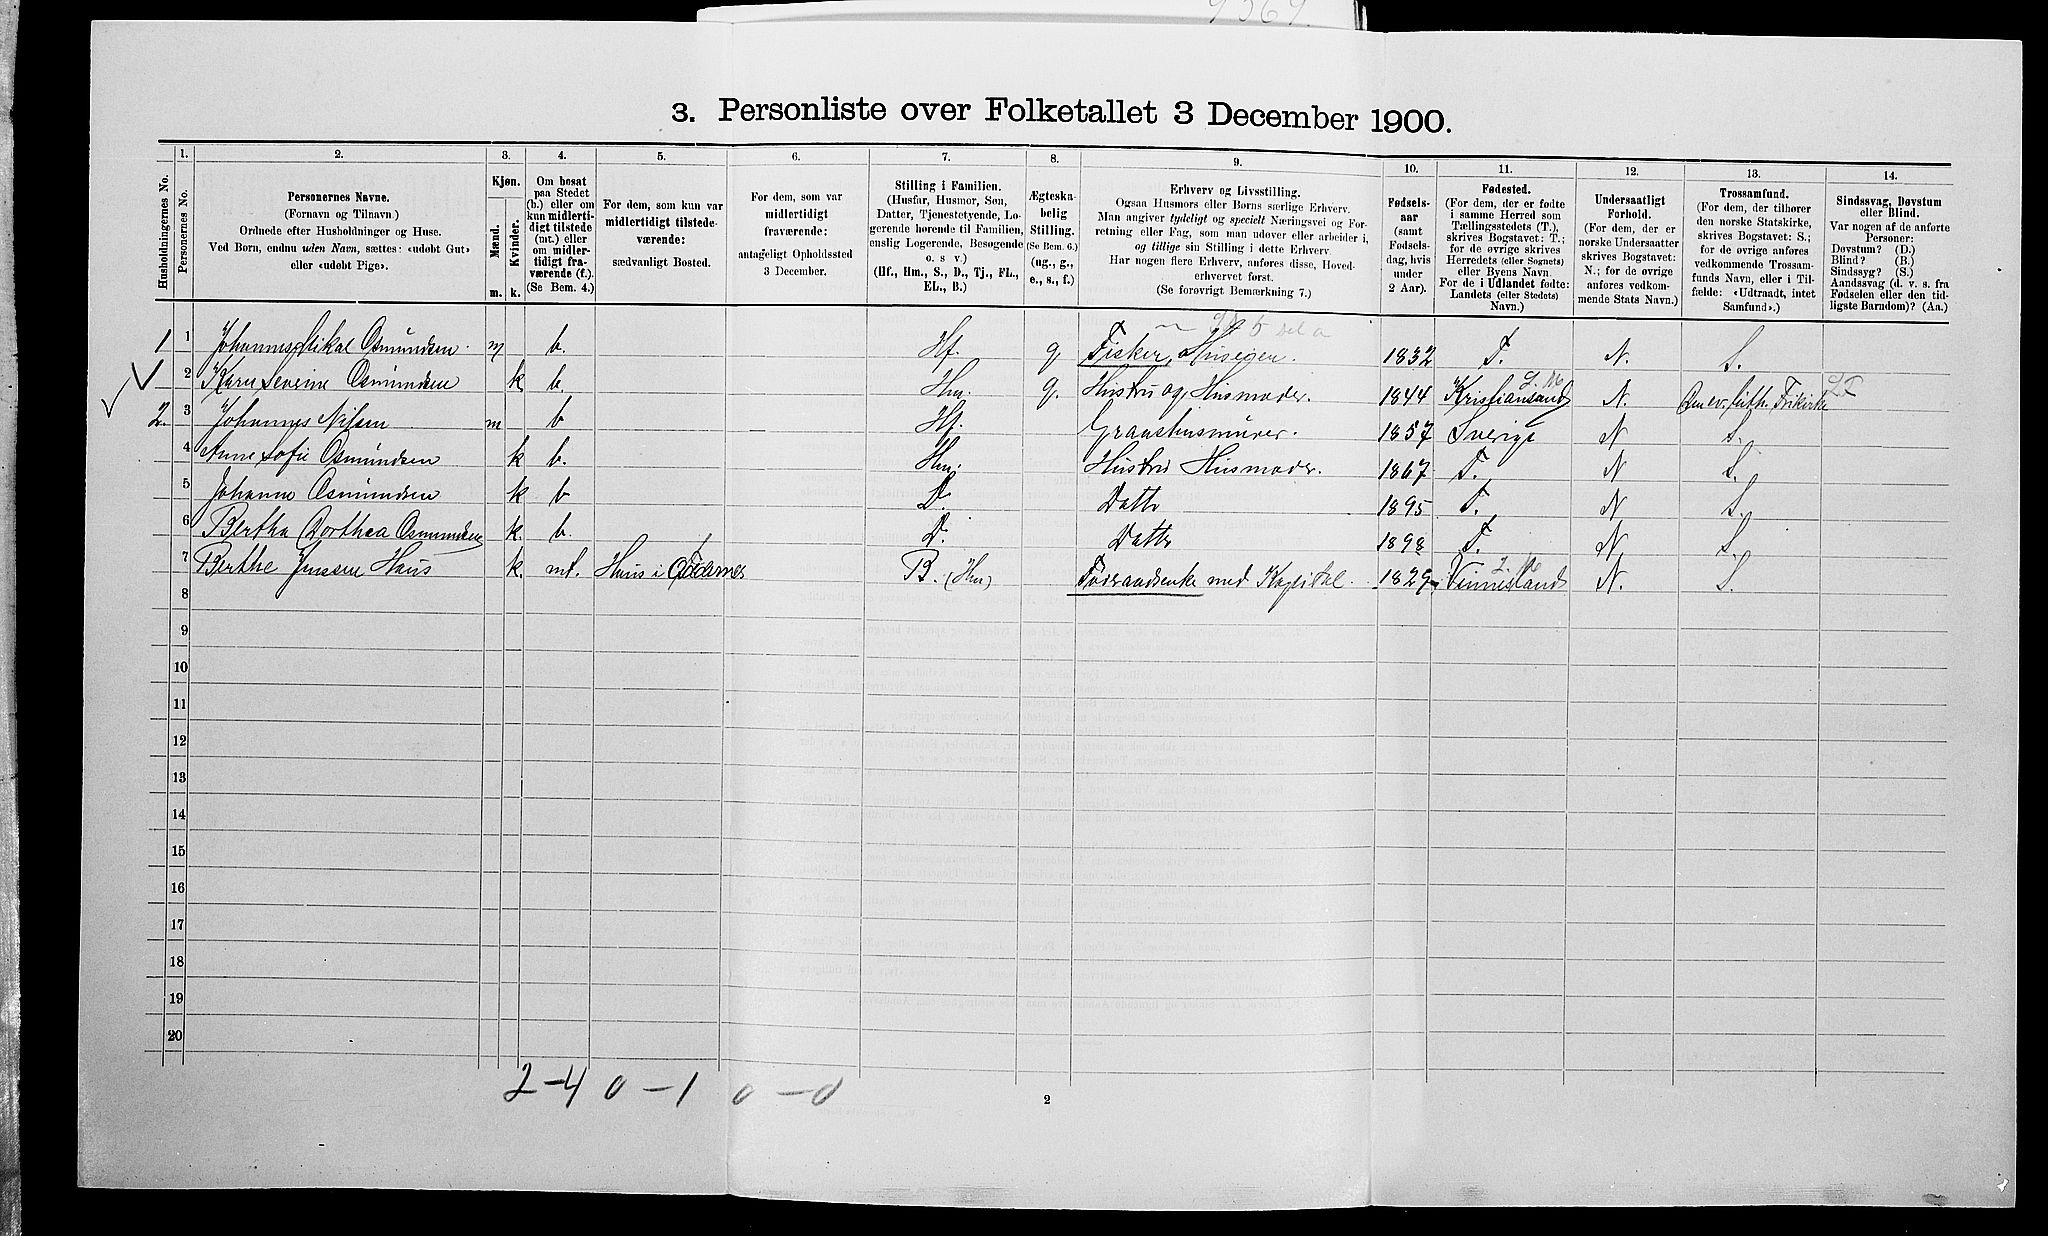 3. Personliste over Folketallet 3 December 1900.
Husholdningernes No.
1. Personernes No.
2. Personernes Navne.
(Fornavn og Tilnavn.)
Ordnede efter Husholdninger og Huse.
Ved Børn, endnu uden Navn, sættes: «udøbt Gut»
eller «udøbt Pige».
3. Kjøn.
Mænd.
Kvinder.
m. k.
4. Om bosat
paa Stedet
(b.) eller om
kun midlerti-
digt tilstede
(mt.) eller
om midler-
tidigt fra-
værende (f.).
(Se Bem. 4.)
5. For dem, som kun var
midlertidigt tilstede-
værende:
sædvanligt Bosted.
6. For dem, som var
midlertidigt
fraværende:
antageligt Opholdssted
3 December.
7. Stilling i Familien.
(Husfar, Husmor, Søn,
Datter, Tjenestetyende, Lo-
gerende hørende til Familien,
enslig Logerende, Besøgende
o. s. v.)
(Hf., Hm., S., D., Tj., FL.,
EL., B.)
8. Ægteska-
belig
Stilling.
(Se Bem. 6.)
(ug., g.,
e., s., f.)
9. Erhverv og Livsstilling.
Ogsaa Husmors eller Børns særlige Erhverv.
Man angiver tydeligt og specielt Næringsvei og For-
retning eller Fag, som man udøver eller arbeider i,
og tillige sin Stilling i dette Erhverv.
Har nogen flere Erhverv, anføres disse, Hoved-
erhvervet først.
(Se forøvrigt Bemærkning 7.)
10. Fødsels-
aar
(samt
Fødsels-
dag, hvis
under
2 Aar).
11. Fødested.
(For dem, der er fødte
i samme Herred som
Tællingsstedets (T.),
skrives Bogstavet: T.;
for de øvrige skrives
Herredets (eller Sognets)
eller Byens Navn.
For de i Udlandet fødte:
Landets (eller Stedets)
Navn.)
12. Undersaatligt
Forhold.
(For dem, der er
norske Undersaatter
skrives Bogstavet:
N.; for de øvrige
anføres vedkom-
mende Stats Navn.)
13. Trossamfund.
(For dem, der tilhører
den norske Statskirke,
skrives Bogstavet: S.;
for de øvrige anføres
vedkommende Trossam-
funds Navn, eller i Til-
fælde: «Udtraadt, intet
Samfund».)
14. Sindssvag, Døvstum
eller Blind.
Var nogen af de anførte
Personer:
Døvstum? (D.)
Blind? (B.)
Sindssyg? (S.)
Aandssvag (d. v. s. fra
Fødselen eller den tid-
ligste Barndom)? (Aa.)
1 1 Johannes Mikal Osmundsen. m b. Hf. g Fisker, Huseier. 1832 T. N. S.
2 Karn Severine Osmundsen k b. Hm. g. Hustru og Husmoder. 1844 Kristiansand N. Den ev. luth. Frikirke
2. 3 Johannes Nilsen m b Hf. 1857 Sverige N S.
4 Anne Sofie Osmundsen k b. Hm. Hustru Husmoder. 1867 T. N S.
5 Johanne Osmundsen k b D. Datter 1895 T. N S.
6 Bertha Dorthea Osmundsen k. b. D. Datter 1898 T. N. S.
7 Berthe Jenssen Haus k. mt. Haus i B. (Hm) Føderaadsenke med Kapital. 1829 Vennesland N. S.
8
9
10
11
12
13
14
15
16
17
18
19
20
2-4 0-1 0-0
2